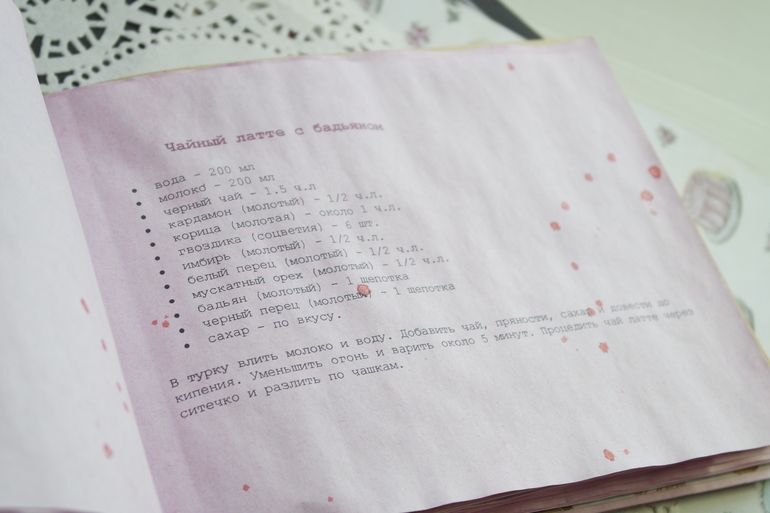 Чайный латте с бадьяном
вода - 200 мл
молоко - 200 мл
черный чай - 1.5 ч.л
кардамон (молотый) - 1/2 ч.л.
корица (молотая) - около 1 ч.л.
гвоздика (соцветия) - 6 шт.
имбирь (молотый) - 1/2 ч.л.
белый перец (молотый) - 1/2 ч.л.
мускатный орех (молотый) - 1/2 ч.л.
бадьян (молотый) - 1 щепотка
черный перец (молотый) - 1 щепотка
сахар - по вкусу.
В турку влить молоко и воду. Добавить чай, пряности, сахар и довести до
кипения. Уменьшить огонь и варить около 5 минут. Процедить чай латте через
ситечко и разлить по чашкам.